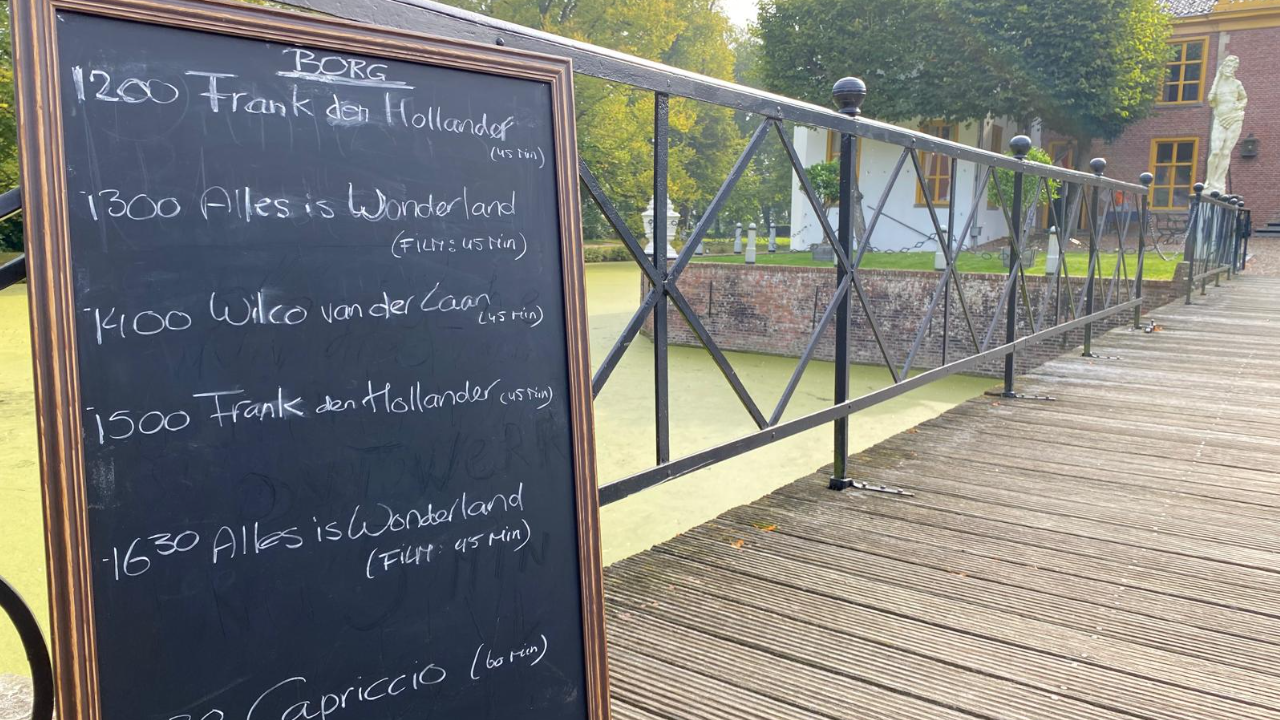 BORG
1200 Frank den Hollander
(45 Min)
1300 Alles is Wonderland
(FILM: 45 Min)
1400 Wilco van der Laan
(45 Min)
1500 Frank den Hollander (45 Min)
1630 Alles is Wonderland
(FILM: 45 Min)
Capriccio (60 Min)